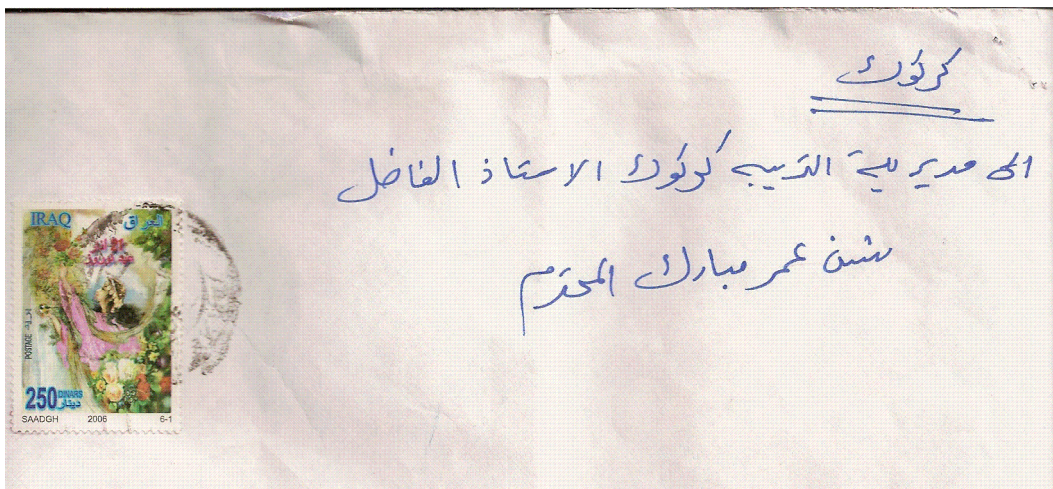 كركوك
الى مديرية التربيه كركوك الاستاذ الفاضل
شن عمر مبارك المحترم
IRAQ العراق
POSTAGE
250 DINARS دينار
SAADGH 2006 6-1